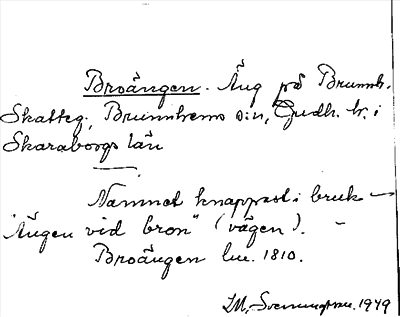 Broängen. Äng på Brunnh.
Skatteg., Brunnhems s:n, Gudh. hr. i
Skaraborgs län
Namnet knappast i bruk —
"Ängen vid bron" (vägen). —
Broängen lm. 1810.
I.M. Svenungsson. 1949